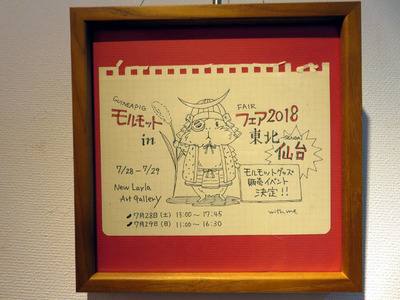 GUINEAPIG FAIR
モルモット フェア2018
in 東北
SENDAI
仙台
7/28-7/29
New Layla
Art Gallery
モルモットグッズ・
販売イベント
決定!!
7月28日(土) 13:00~17:45
7月29日(日) 11:00~16:30
with me